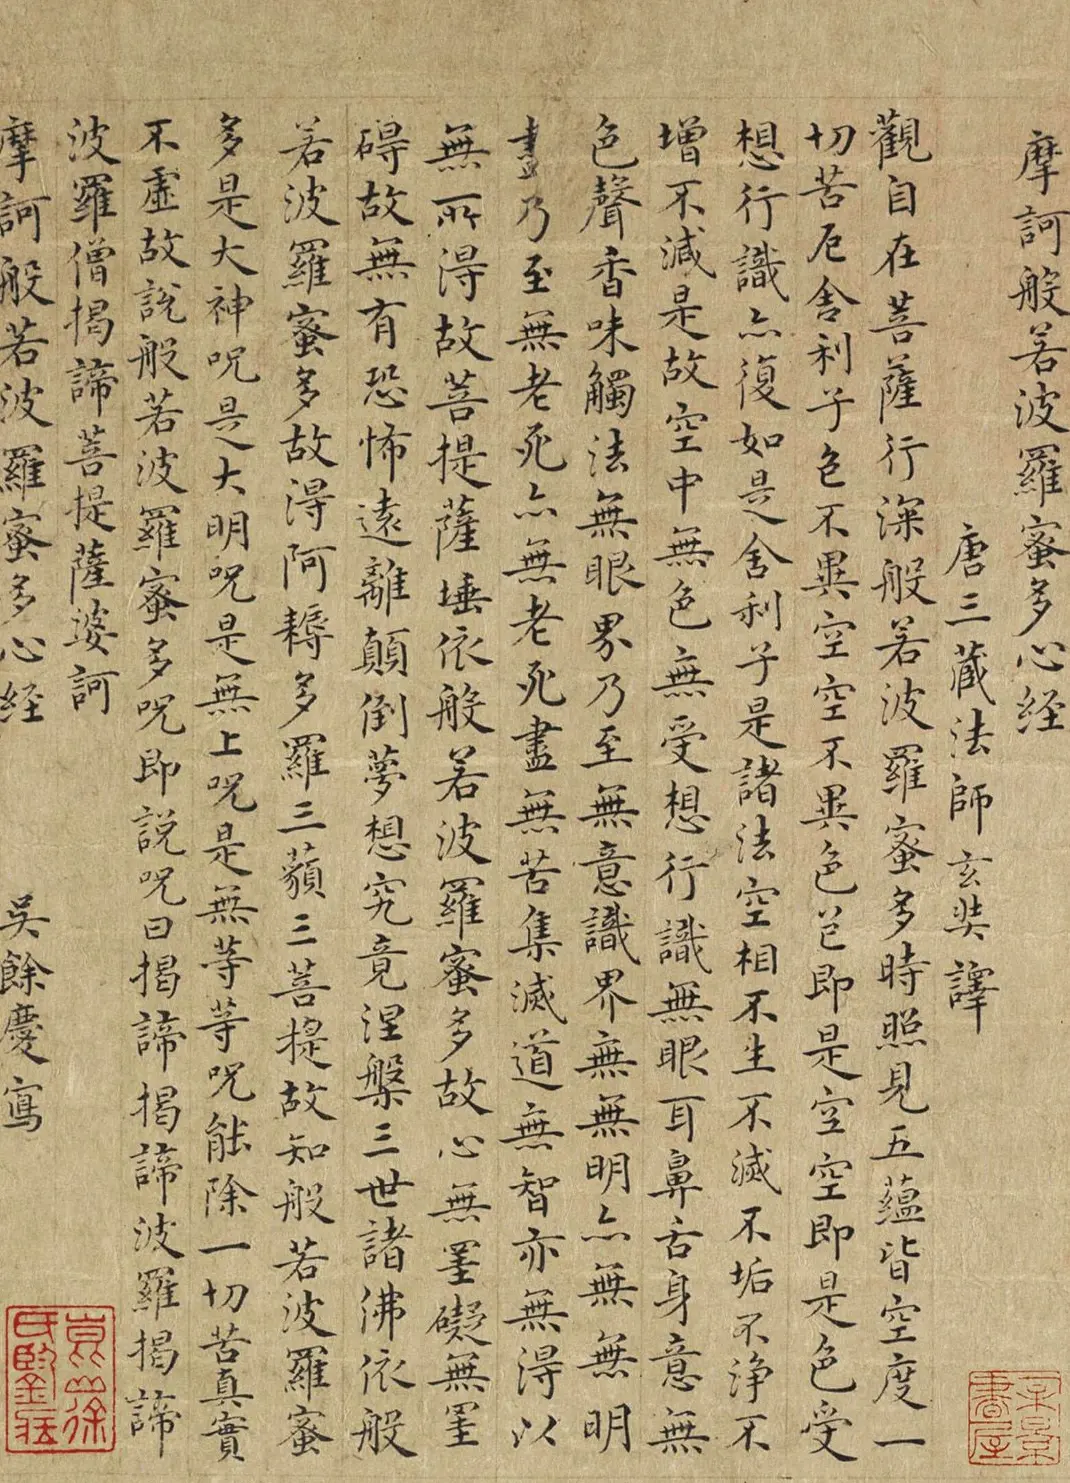 摩訶般若波羅蜜多心経
唐三蔵法師玄奘譯
觀自在菩薩行深般若波羅蜜多時照見五蘊皆空度一
切苦厄舍利子色不異空空不異色色即是空空即是色受
想行識亦復如是舍利子是諸法空相不生不滅不垢不淨不
增不減是故空中無色無受想行識無眼耳鼻舌身意無
色聲香味觸法無眼界乃至無意識界無無明亦無無明
盡乃至無老死亦無老死盡無苦集滅道無智亦無得以
無所得故菩提薩埵依般若波羅蜜多故心無罣礙無罣
碍故無有恐怖遠離顛倒夢想究竟涅槃三世諸佛依般
若波羅蜜多故得阿耨多羅三藐三菩提故知般若波羅蜜
多是大神呪是大明呪是無上呪是無等等呪能除一切苦真實
不虛故說般若波羅蜜多呪即說呪曰揭諦揭諦波羅揭諦
波羅僧揭諦菩提薩婆訶
摩訶般若波羅蜜多心経
吳餘慶寫